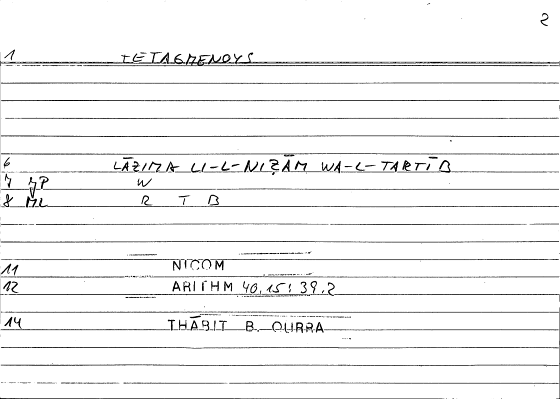 2
1 TETAGMENOYS
6 LĀZIMA LI-L-NIẒĀM WA-L-TARTĪB
7 MP W
8 ML R T B
11 NICOM
12 ARITHM 40.15; 39.2
14 THĀBIT B. QURRA